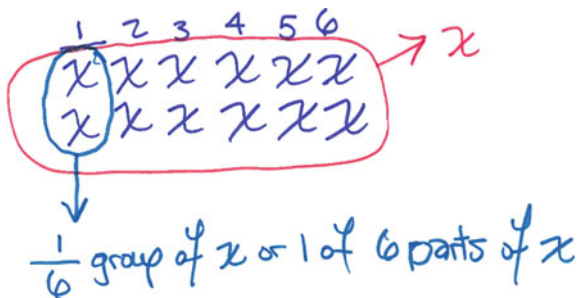 1 2 3 4 5 6
x x x x x x → x
x x x x x x
1/6 group of x or 1 of 6 parts of x